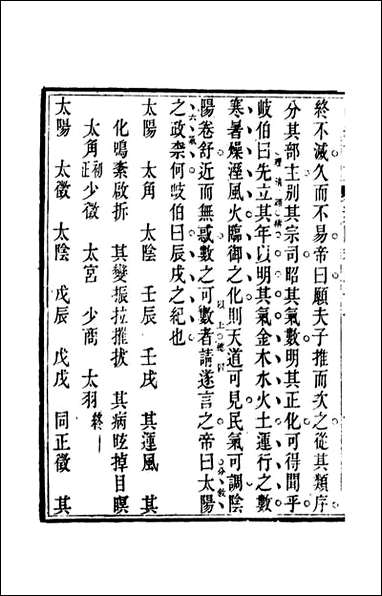 終不滅久而不易帝曰願夫子推而次之從其類序
分其部主別其宗司昭其氣數明其正化可得聞乎
岐伯曰先立其年以明其氣金木水火土運行之數
寒暑燥溼風火臨御之化則天道可見民氣可調陰
陽卷舒近而無惑數之可數者請遂言之帝曰太陽
之政奈何岐伯曰辰戌之紀也
太陽 太角 太陰 壬辰 壬戌 其運風 其
化鳴紊啟拆 其變振拉摧拔 其病眩掉目瞑
太角初正少徵 太宮 少商 太羽終
太陽 太徵 太陰 戊辰 戊戌 同正徵 其